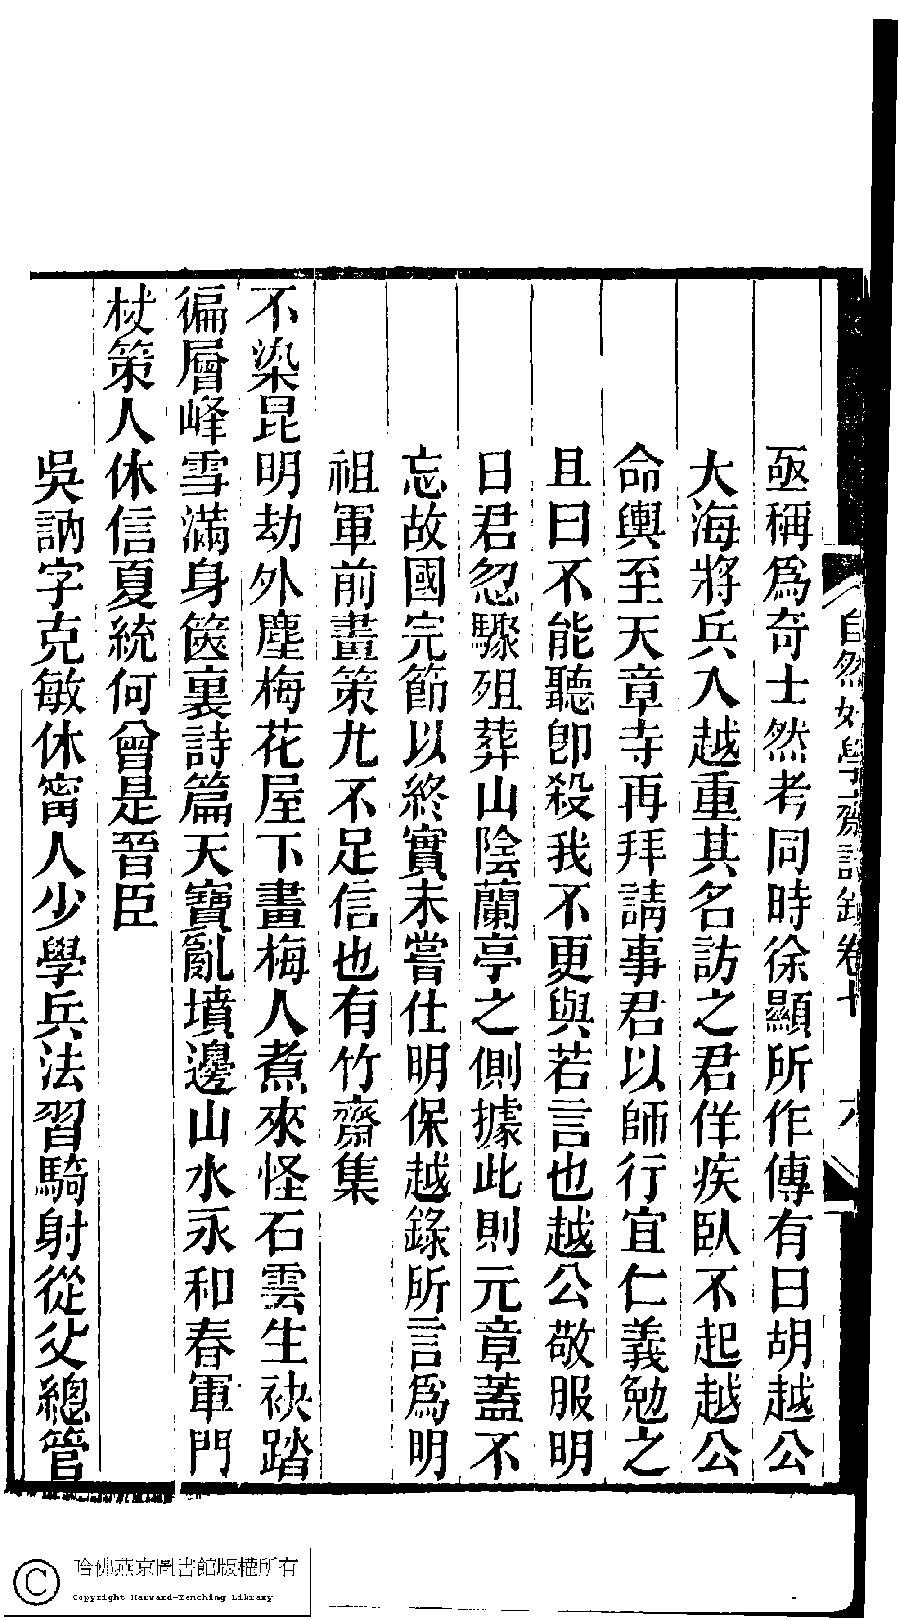 自然好學齋詩鈔卷十 六
亟稱爲奇士然考同時徐顯所作傳有曰胡越公
大海將兵入越重其名訪之君佯疾臥不起越公
命輿至天章寺再拜請事君以師行宜仁義勉之
且曰不能聽卽殺我不更與若言也越公敬服明
日君忽驟殂葬山陰蘭亭之側據此則元章蓋不
忘故國完節以終實未嘗仕明保越錄所言爲明
祖軍前畫策尤不足信也有竹齋集
不染昆明劫外塵梅花屋下畫梅人煮來怪石雲生袂踏
徧層峰雪滿身篋裏詩篇天寶亂墳邊山水永和春軍門
杖策人休信夏統何曾是晉臣
吳訥字克敏休甯人少學兵法習騎射從父總管
哈佛燕京圖書館版權所有
Copyright Harvard-Yenching Library